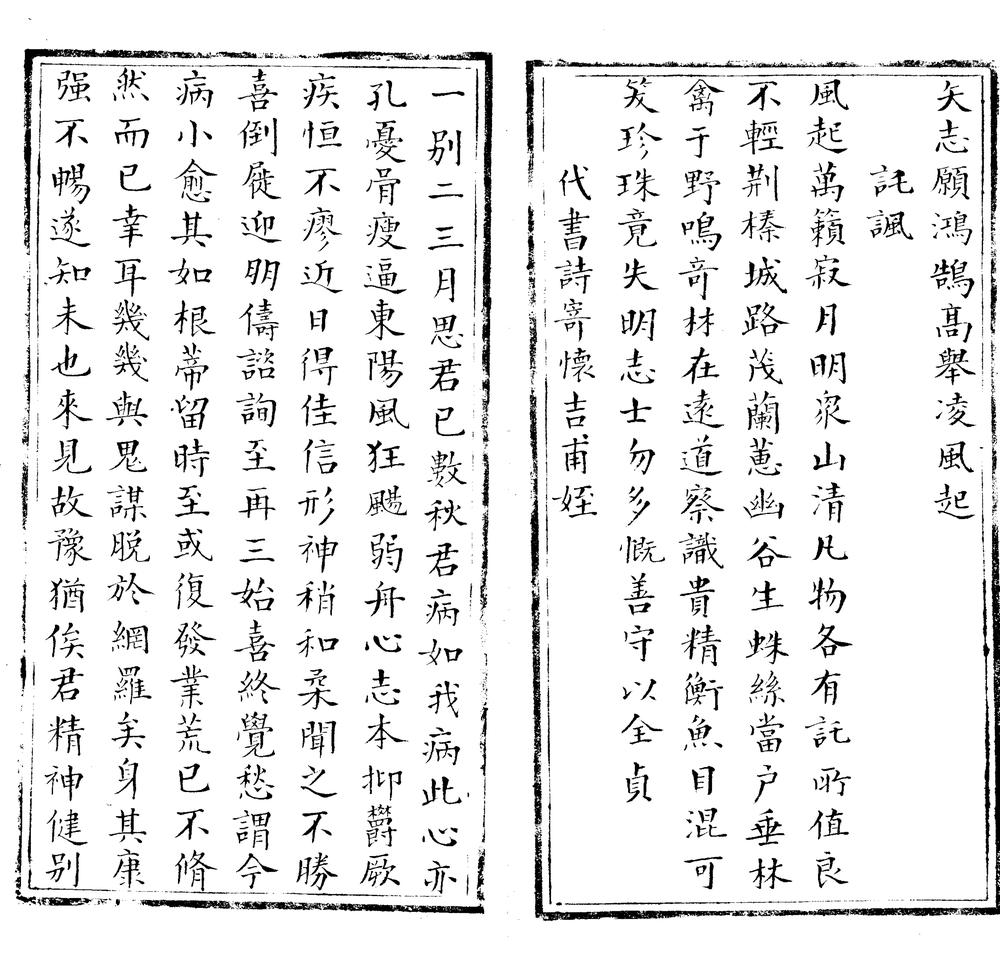 矢志願鴻鵠高舉凌風起
託諷
風起萬籟寂月明衆山清凡物各有託所值良
不輕荆榛城路茂蘭蕙幽谷生蛛絲當户垂林
禽于野鳴奇材在遠道察識貴精衡魚目混可
笑珍珠竟失明志士勿多慨善守以全貞
代書詩寄懷吉甫姪
一别二三月思君已數秋君病如我病此心亦
孔憂骨瘦逼東陽風狂颺弱舟心志本抑欝厥
疾恒不瘳近日得佳信形神稍和柔聞之不勝
喜倒屣迎明儔諮詢至再三始喜終覺愁謂今
病小愈其如根蒂留時至或復發業荒已不脩
然而已幸耳幾幾與鬼謀脱於網羅矣身其康
强不暢遂知未也來見故豫猶俟君精神健别